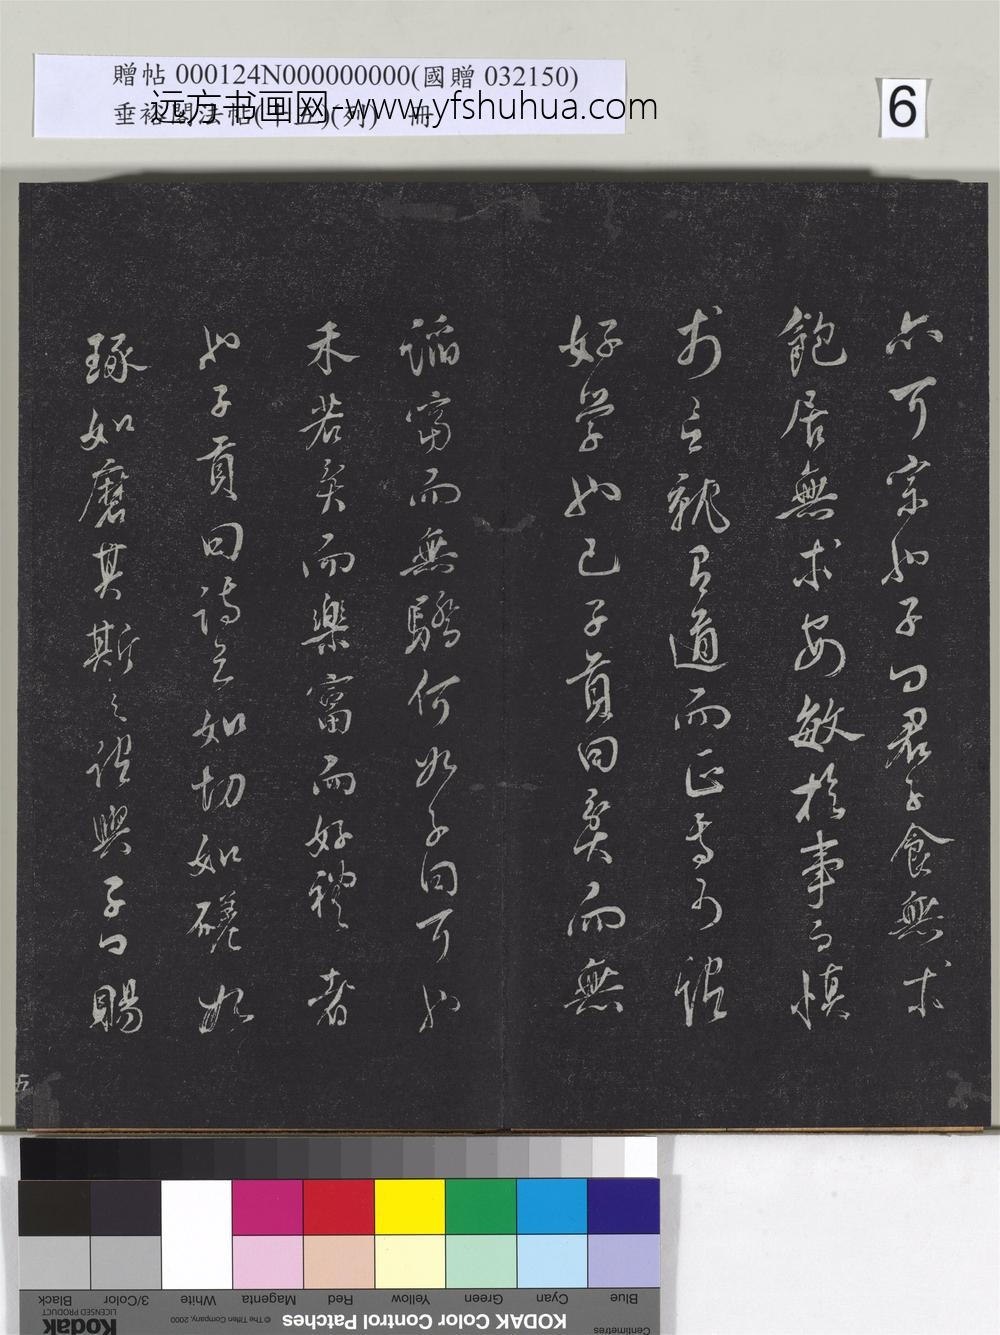 贈帖 000124N000000000(國贈 032150)
垂裕閣法帖(十五)(列) 冊
远方书画网-www.yfshuhua.com
6
亦可宗也子曰君子食無求
飽居無求安敏於事而慎
於言就有道而正焉可謂
好學也已子貢曰貧而無
諂富而無驕何如子曰可也
未若貧而樂富而好禮者
也子貢曰詩云如切如磋如
琢如磨其斯之謂與子曰賜
五
Blue
Cyan
Green
Yellow
Red
Magenta
White
3/Color
Black
Centimetres
KODAK Color Control Patches
© The Tiffen Company, 2000
Kodak
LICENSED PRODUCT